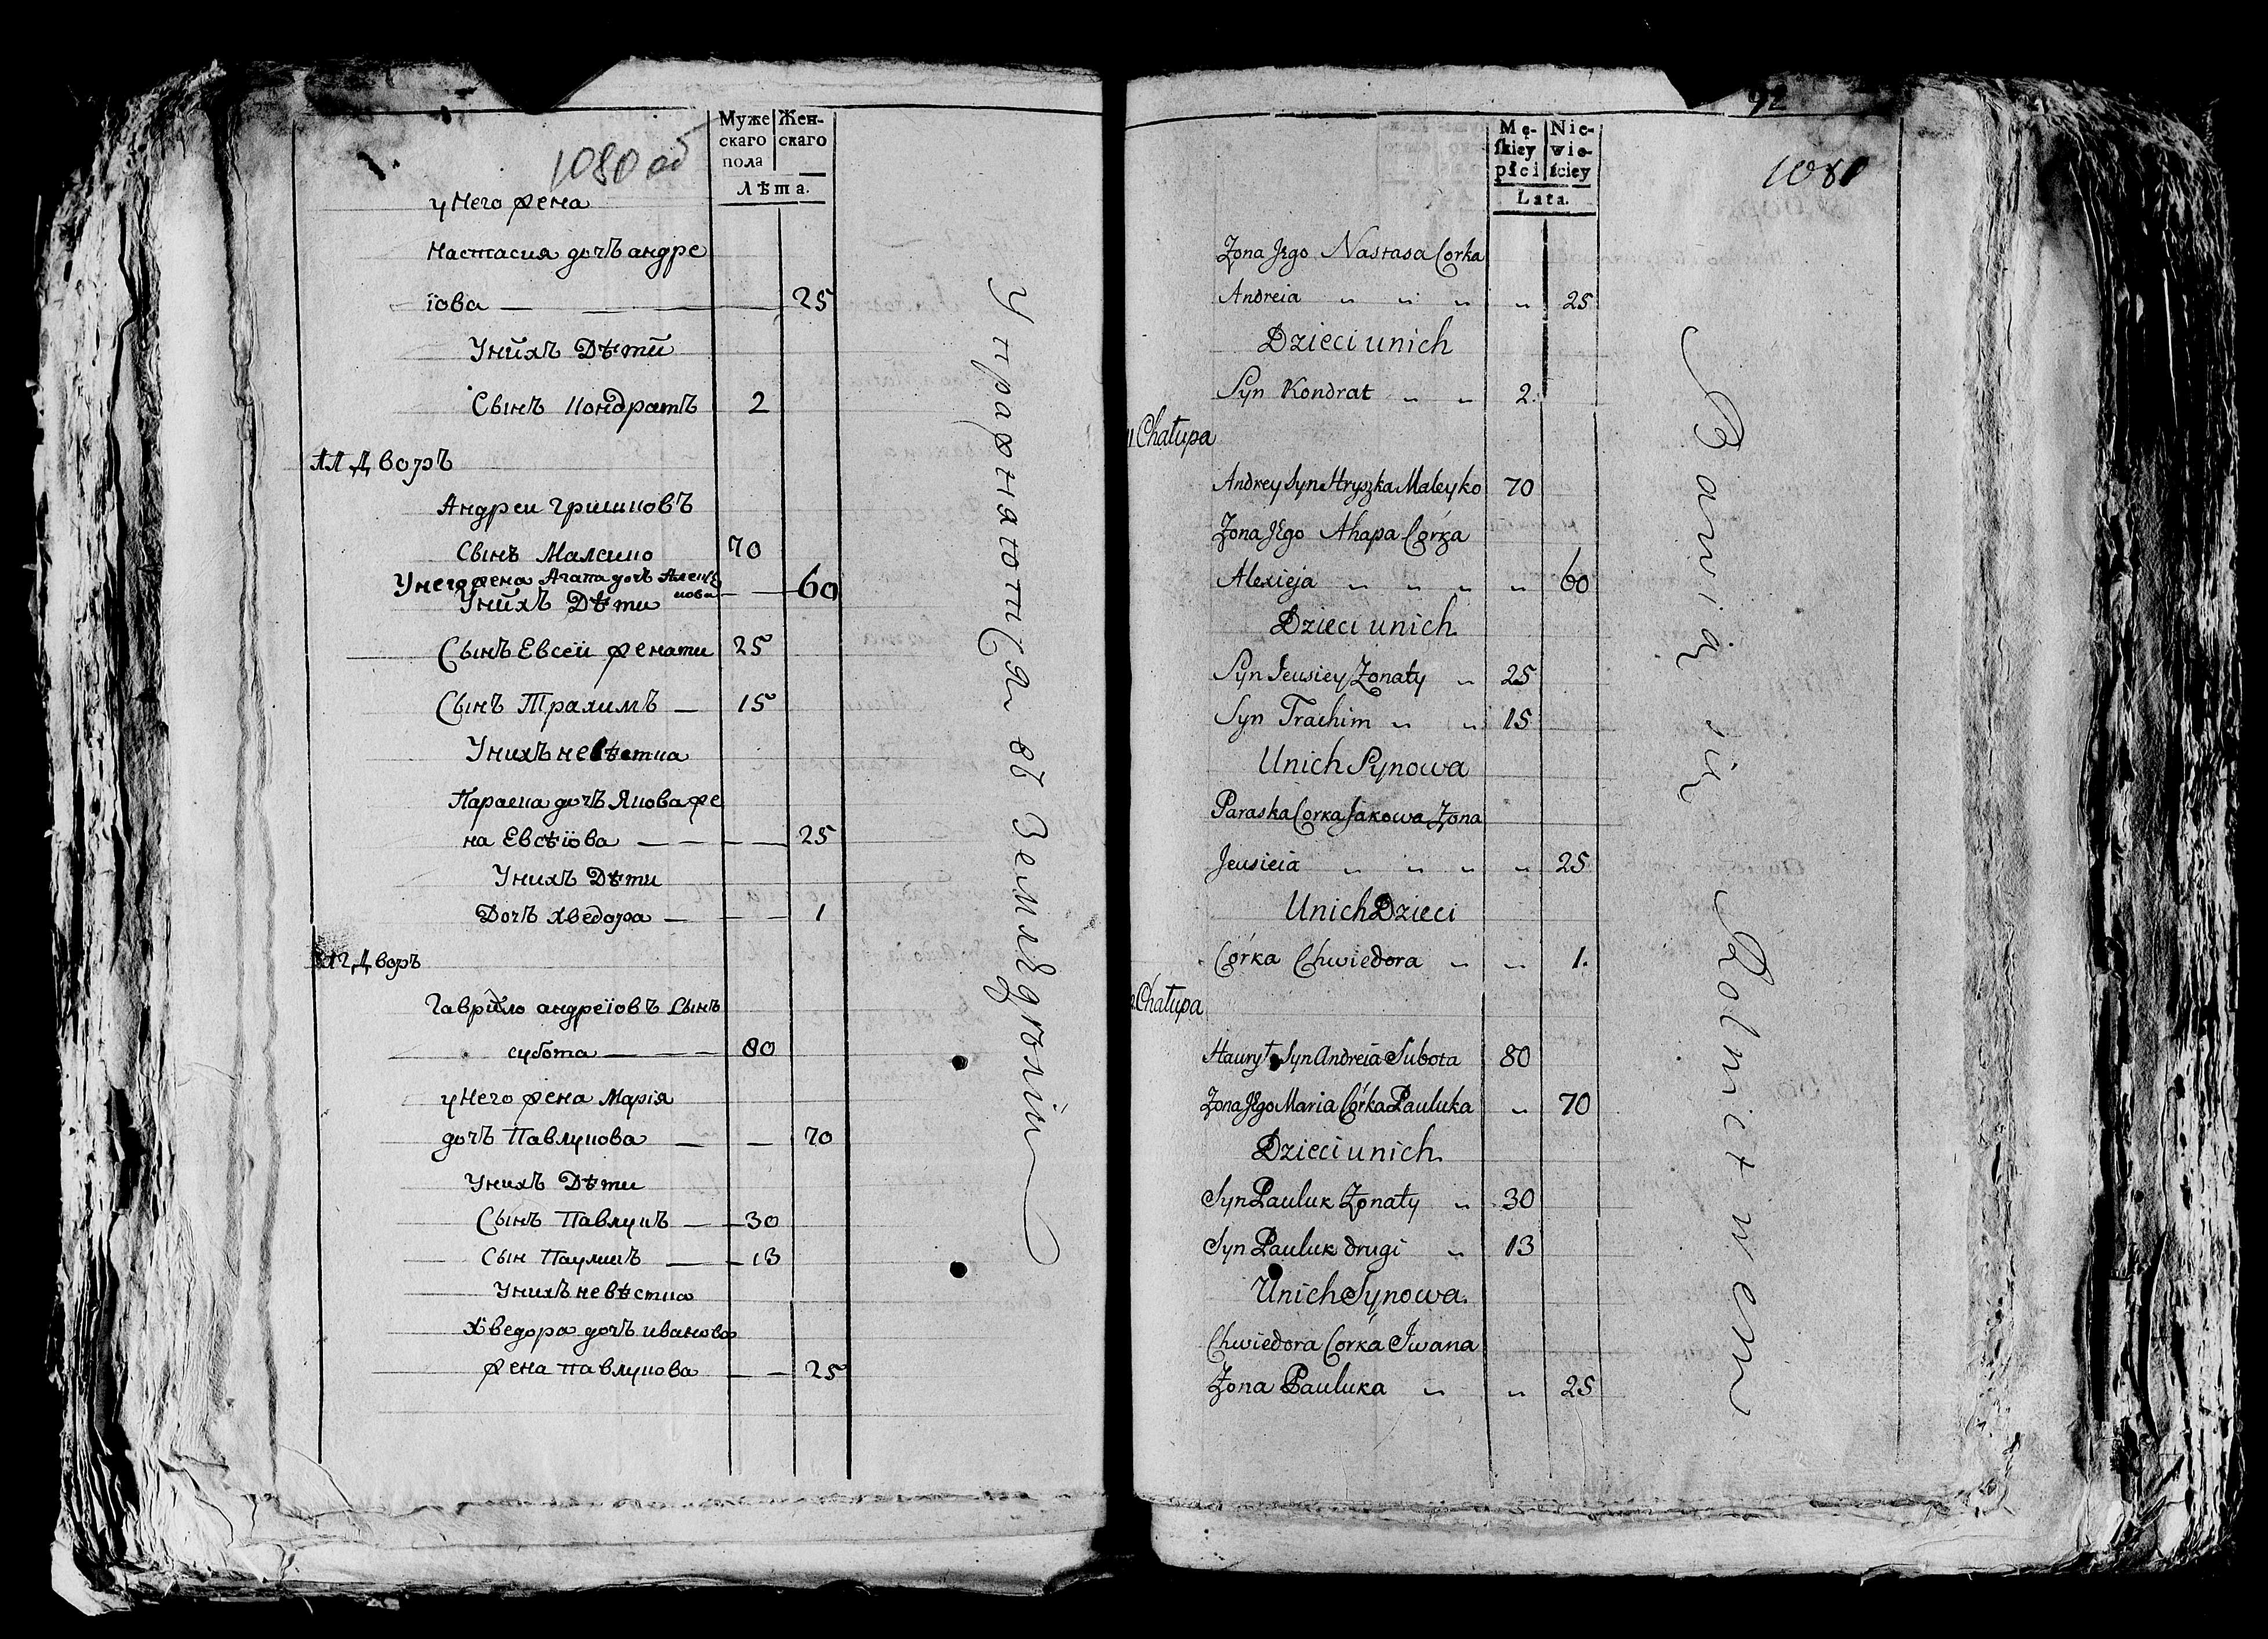 1080 об
Муже
скаго
пола
Жен-
скаго
Лѣта.
у него жена
настасия дочъ андре
їова — — 25
Унихъ Дѣти
Сынъ Кондратъ 2
11 Дворъ
Андреи гришковъ
сынъ Малеико 70
У него жена Агапа дочъ Алексѣ
кова — — 60
Унихъ Дѣти
Сынъ Евсеи женати 25
Сынъ Трахимъ — 15
Унихъ невѣстка
Параска дочъ Якова же
на Евсѣїова — — — — 25
Унихъ Дѣти
Дочъ хведора — — — 1
12 Дворъ
Гаврило андреїовъ сынъ
субота — — — 80
у него жена Марїя
дочъ Павлукова — — 70
Унихъ Дѣти
Сынъ Павлукъ — — 30
Сын Пауликъ — — 13
Унихъ невѣстка
Хведора дочъ иванова
жена павлукова — — 25
Упражняются въ Земледѣлїи
92
1081
Mę-
skiey
płci
Nie-
wie-
ściey
Lata.
Zona Jego Nastasa Corka
Andreia „ „ „ „ 25
Dzieci unich
Syn Kondrat „ „ 2.
11 Chałupa
Andrey Syn Hryszka Maleyko 70
Zona Jego Ahapa Córka
Alexieja „ „ „ „ 60
Dzieci unich
Syn Jeusiey Zonaty „ 25
Syn Trachim „ „ 15
Unich Synowa
Paraska Corka Jakowa Zona
Jeusieia „ „ „ „ 25
Unich Dzieci
Córka Chwiedora „ „ 1.
2. Chałupa
Haurył Syn Andreia Subota 80
Zona Jego Maria Córka Pauluka „ 70
Dzieci unich
Syn Pauluk Zonaty „ 30
Syn Pauluk drugi „ 13
Unich Synowa
Chwiedora Corka Jwana
Zona Pauluka „ „ 25
Bawią się Rolnictwem